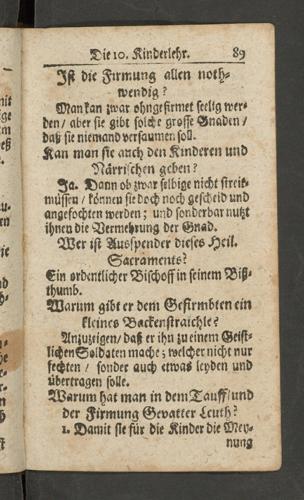 Die 10. Kinderlehr. 89
Ist die Firmung allen noth-
wendig?
Man kan zwar ohngefirmet seelig wer-
den / aber sie gibt solche grosse Gnaden /
daß sie niemand versaumen soll.
Kan man sie auch den Kinderen und
Närrischen geben?
Ja. Dann ob zwar selbige nicht streit-
müssen / können sie doch noch gescheid und
angefochten werden; und sonderbar nutzt
ihnen die Vermehrung der Gnad.
Wer ist Ausspender dieses Heil.
Sacraments?
Ein ordentlicher Bischoff in seinem Biß-
thumb.
Warum gibt er dem Gefirmbten ein
kleines Backenstraichle?
Anzuzeigen / daß er ihn zu einem Geist-
lichen Soldaten mache; welcher nicht nur
fechten / sonder auch etwas leyden und
übertragen solle.
Warum hat man in dem Tauff / und
der Firmung Gevatter Leuth?
1. Damit sie für die Kinder die Mey-
nung